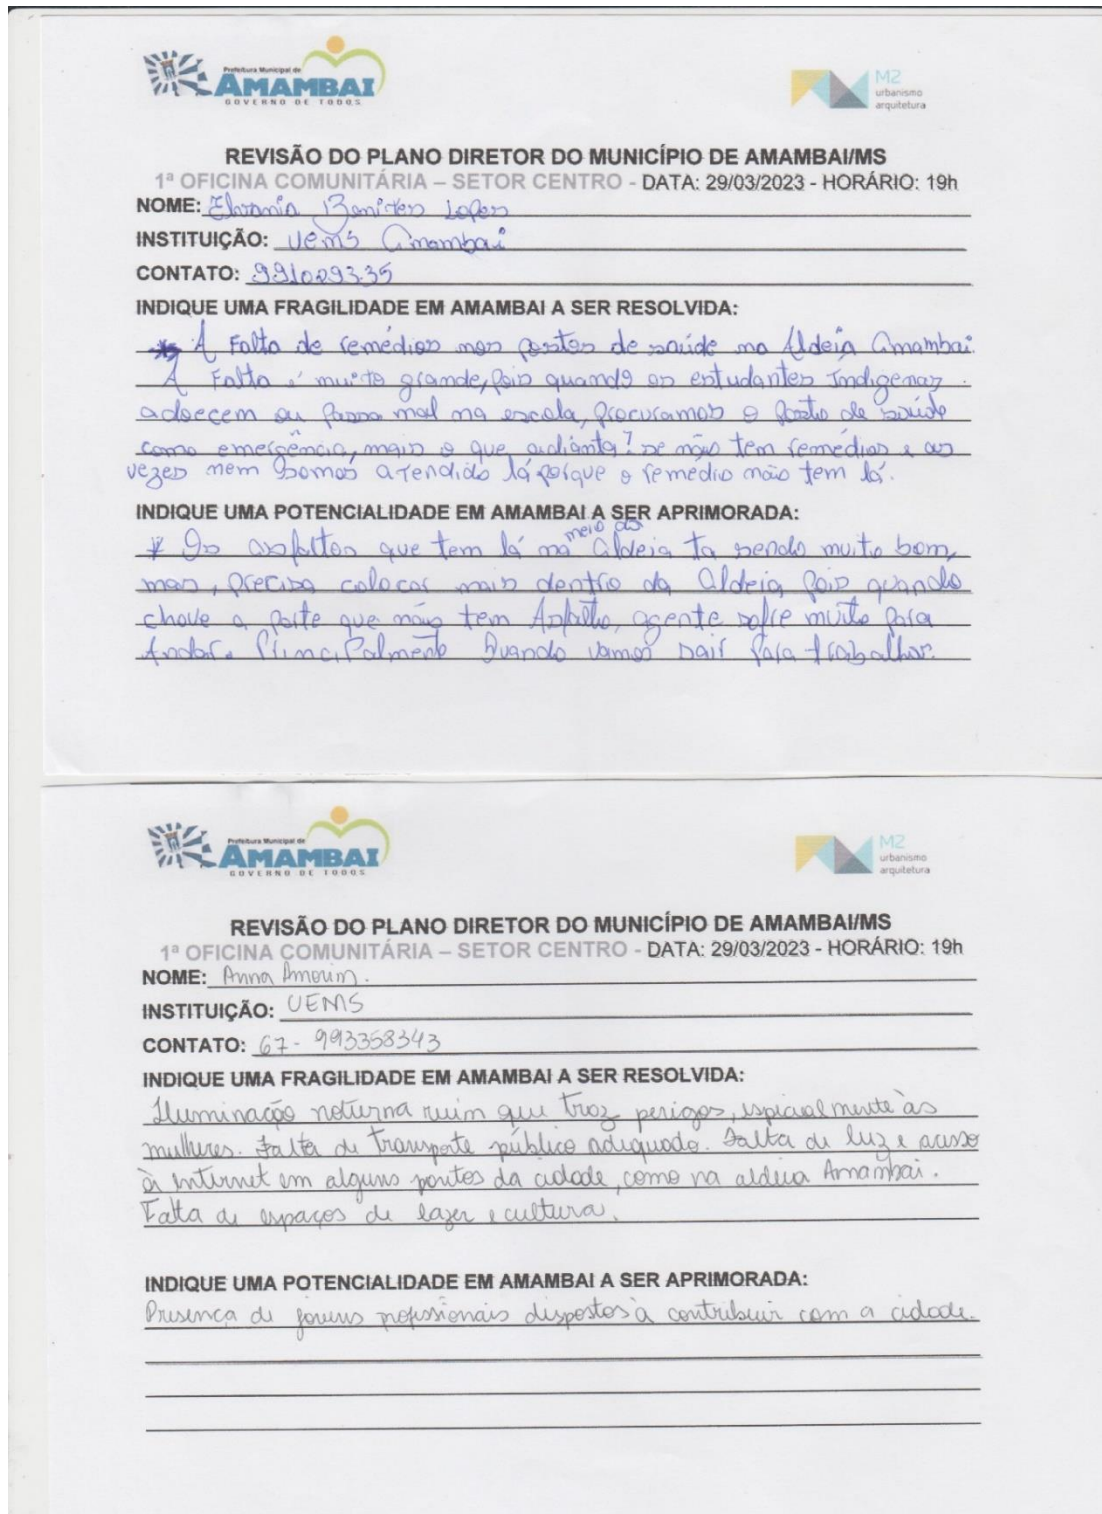 Prefeitura Municipal de
AMAMBAI
GOVERNO DE TODOS
M2
urbanismo
arquitetura
REVISÃO DO PLANO DIRETOR DO MUNICÍPIO DE AMAMBAI/MS
1ª OFICINA COMUNITÁRIA – SETOR CENTRO - DATA: 29/03/2023 - HORÁRIO: 19h
NOME: Benites Lopes
INSTITUIÇÃO: UEMS Amambai
CONTATO: 991029335
INDIQUE UMA FRAGILIDADE EM AMAMBAI A SER RESOLVIDA:
* A Falta de remédios nos postos de saúde na Aldeia Amambai.
A Falta é muito grande, pois quando os estudantes Indígenas
adoecem ou passa mal na escola, procuramos o Posto de saúde
como emergência, mais o que adianta? se não tem remédios e as
vezes nem somos atendido lá porque o remédio não tem lá.
INDIQUE UMA POTENCIALIDADE EM AMAMBAI A SER APRIMORADA:
* Os asfaltos que tem lá no meio da aldeia ta sendo muito bom,
mas, precisa colocar mais dentro da aldeia pois quando
chove a parte que não tem Asfalto, agente sofre muito para
Andar. Principalmente quando vamos sair para trabalhar.
Prefeitura Municipal de
AMAMBAI
GOVERNO DE TODOS
M2
urbanismo
arquitetura
REVISÃO DO PLANO DIRETOR DO MUNICÍPIO DE AMAMBAI/MS
1ª OFICINA COMUNITÁRIA – SETOR CENTRO - DATA: 29/03/2023 - HORÁRIO: 19h
NOME: Anna Amorim.
INSTITUIÇÃO: UEMS
CONTATO: 67- 993358343
INDIQUE UMA FRAGILIDADE EM AMAMBAI A SER RESOLVIDA:
Iluminação noturna ruim que traz perigos, especialmente às
mulheres. Falta de transporte público adequado. Falta de luz e acesso
à internet em alguns pontos da cidade, como na aldeia Amambai.
Falta de espaços de lazer e cultura.
INDIQUE UMA POTENCIALIDADE EM AMAMBAI A SER APRIMORADA:
Presença de jovens profissionais dispostos à contribuir com a cidade.